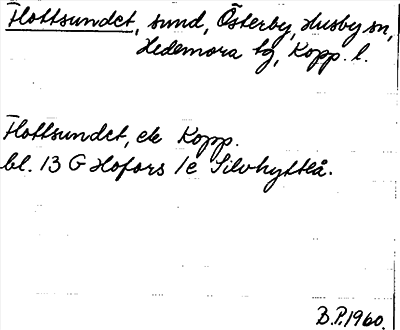 Flottsundet, sund, Österby, Husby sn,
Hedemora tg, Kopp. l.
Flottsundet, ek Kopp.
bl. 13 G Hofors 1e Silvhytteå.
B.P.1960.